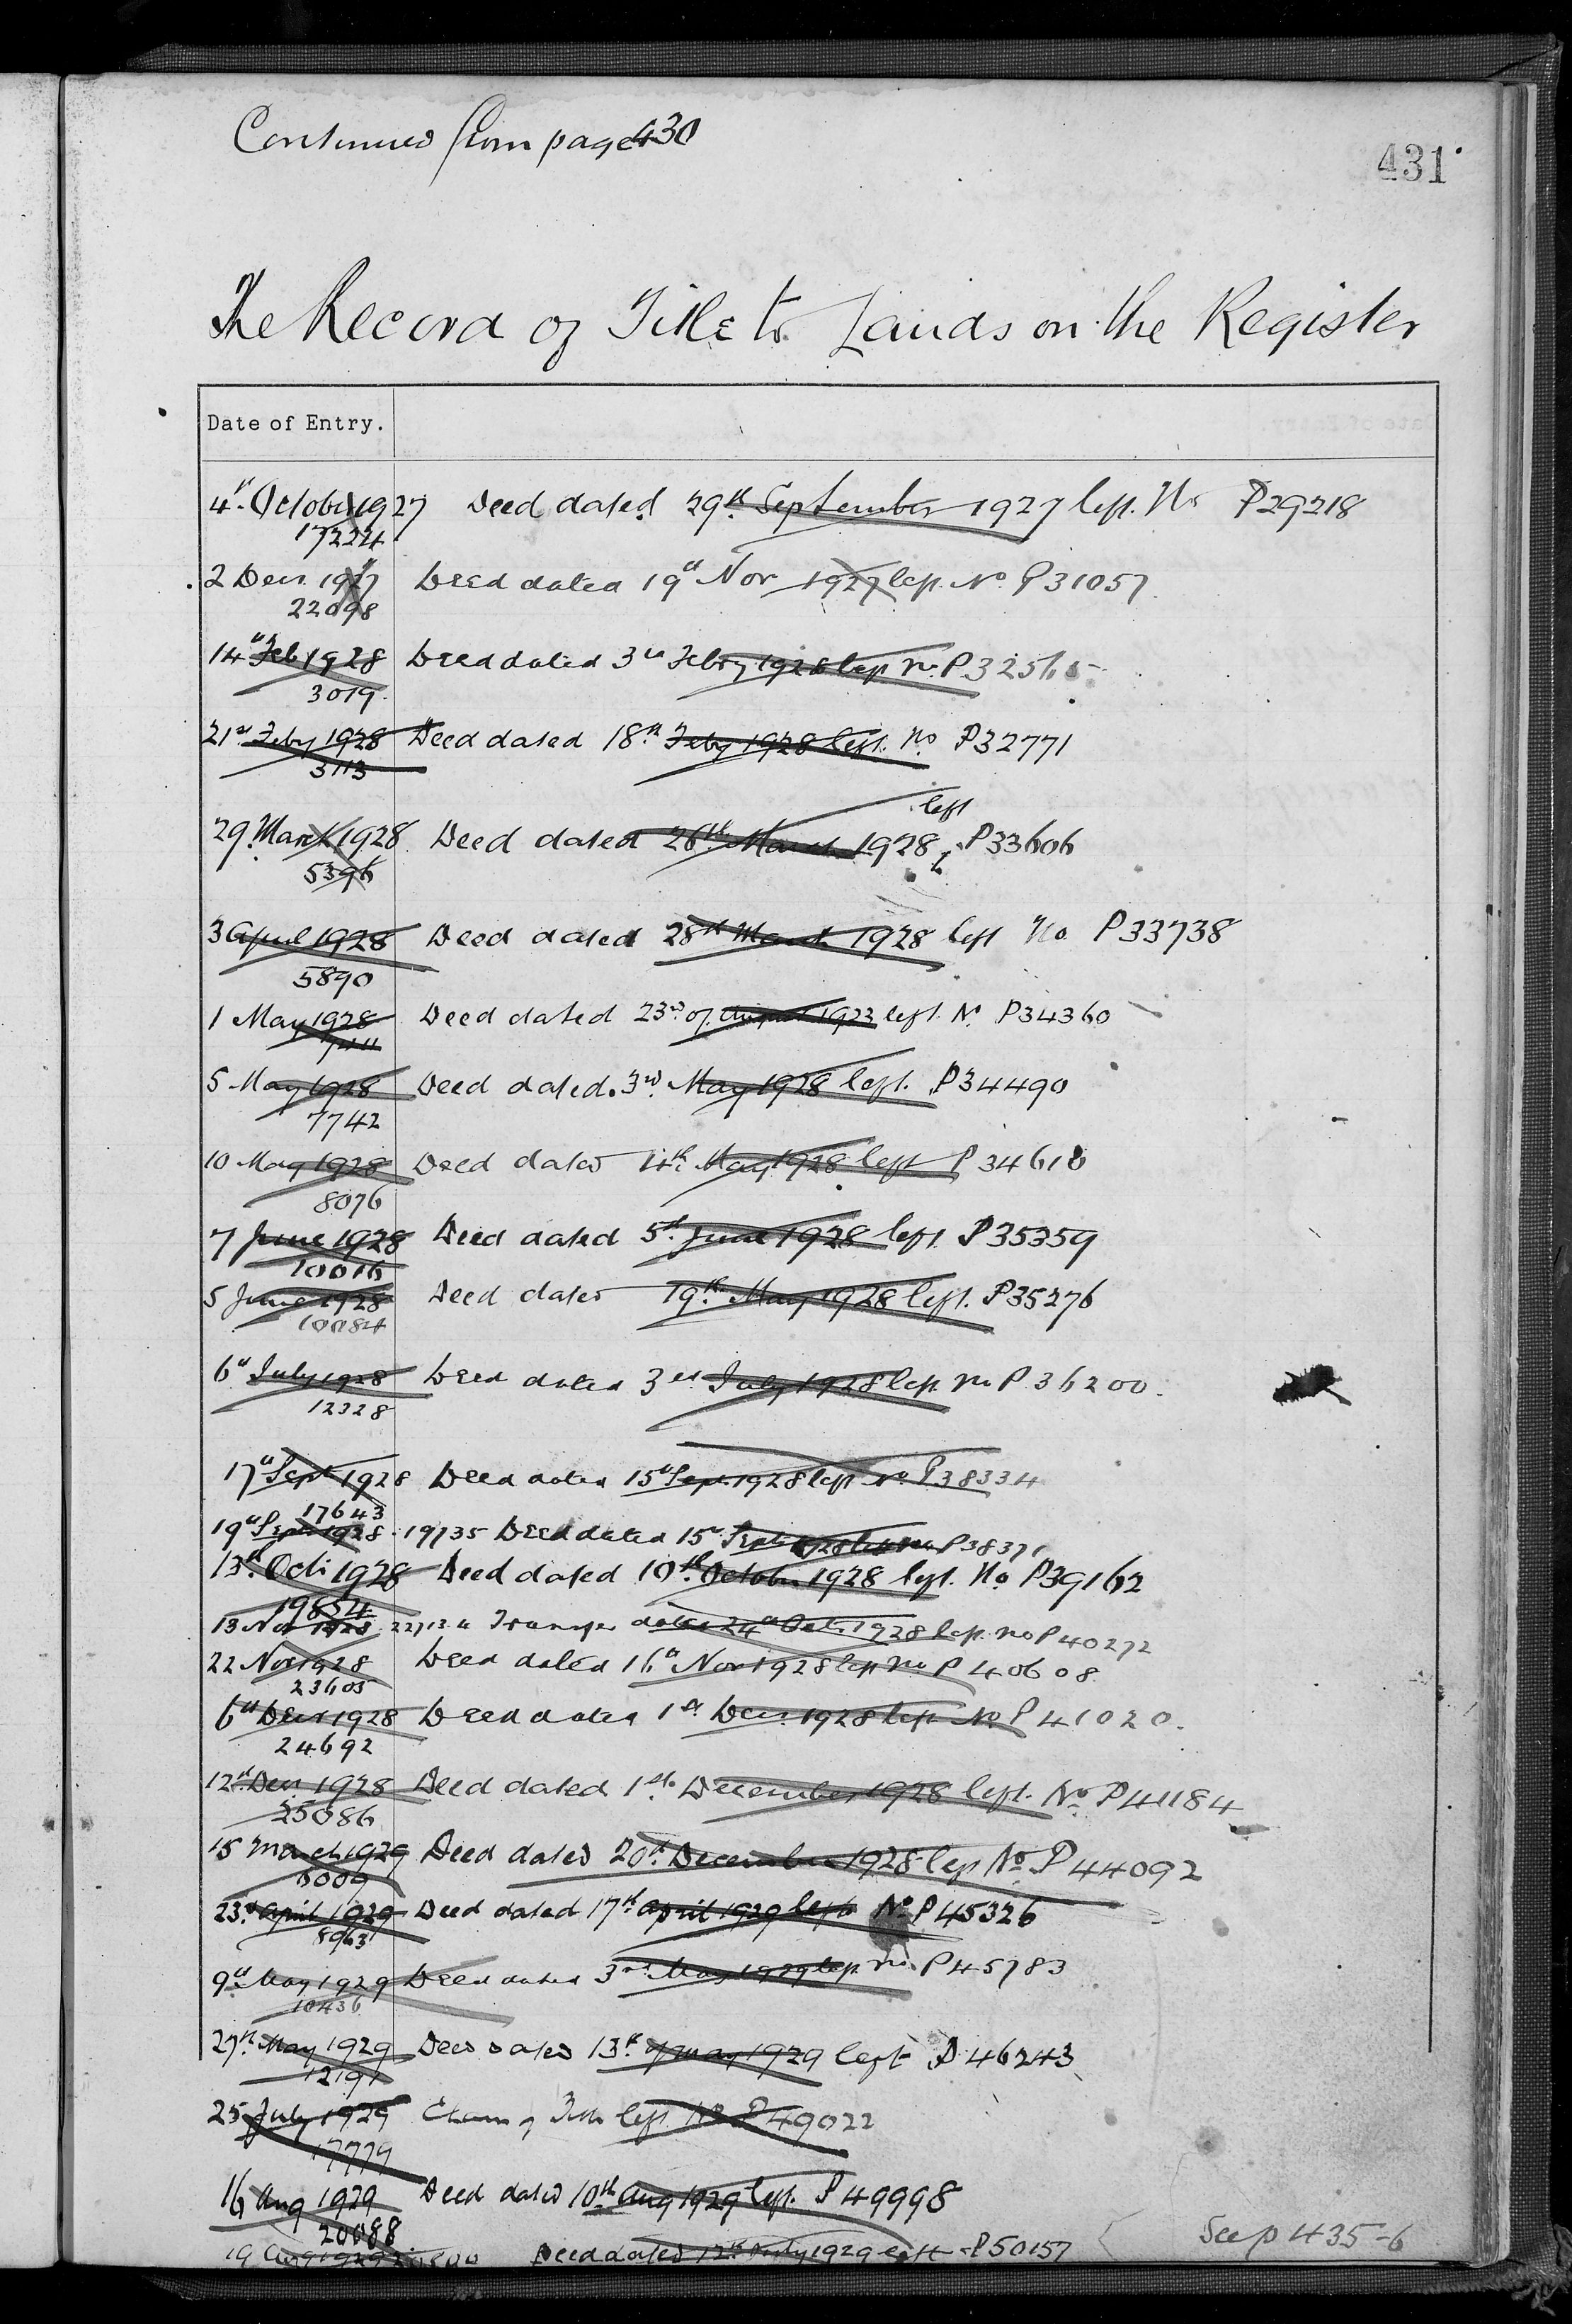 Continued from page 430
431
The Record of Title to Lands on the Register
Date of Entry.
4th October 1927 Deed dated 29th September 1927 left. No P29218
17224
2 Decr. 1927 Deed dated 19th Nov 1927 left. No. P31057
22098
14th Feb 1928 Deed dated 3rd Febry 1928 left No. P32565
3019
21st Feby 1928 Deed dated 18th Feby 1928 left. No P32771
3113
left
29 March 1928 Deed dated 26th March 1928 P33606
5396
3 April 1928 Deed dated 28th March 1928 left No P33738
5890
1 May 1928 Deed dated 23rd of August 1923 left. No. P34360
7411
5 May 1928 Deed dated 3rd May 1928 left. P34490
7742
10 May 1928 Deed dated 4th May 1928 left P34618
8076
7 June 1928 Deed dated 5th June 1928 left P35359
10016
5 June 1928 Deed dated 19th May 1928 left. P35276
10084
6th July 1928 Deed dated 3rd July 1928 left No P36200.
12328
17th Sept 1928 Deed dated 15th Sept 1928 left No P38334
17643
19th Sept 1928 Deed dated 15th Sept 1928 left No P38371
13th Oct 1928 Deed dated 10th October 1928 left. No P39162
19854
13 Nov 1928 Transfer dated 24th Oct 1928 left. No P40272
22 Nov 1928 Deed dated 16th Nov 1928 left No P40608
23605
6th Decr 1928 Deed dated 1st Decr. 1928 left No P41020.
24692
12th Decr 1928 Deed dated 1st December 1928 left. No P41184
25086
15 March 1929 Deed dated 20th December 1928 left No. P44092
23rd April 1929 Deed dated 17th April 1929 left No P45326
8963
9th May 1929 Deed dated 3rd May 1929 left No. P45783
10436
27th May 1929 Deed dated 13th of May 1929 left P46243
12191
25 July 1929 left No P49022
17779
16 Aug 1929 Deed dated 10th Aug 1929 left. P49998
20088
19 Aug 1929 Deed dated 12th July 1929 left P50157
See p 435-6